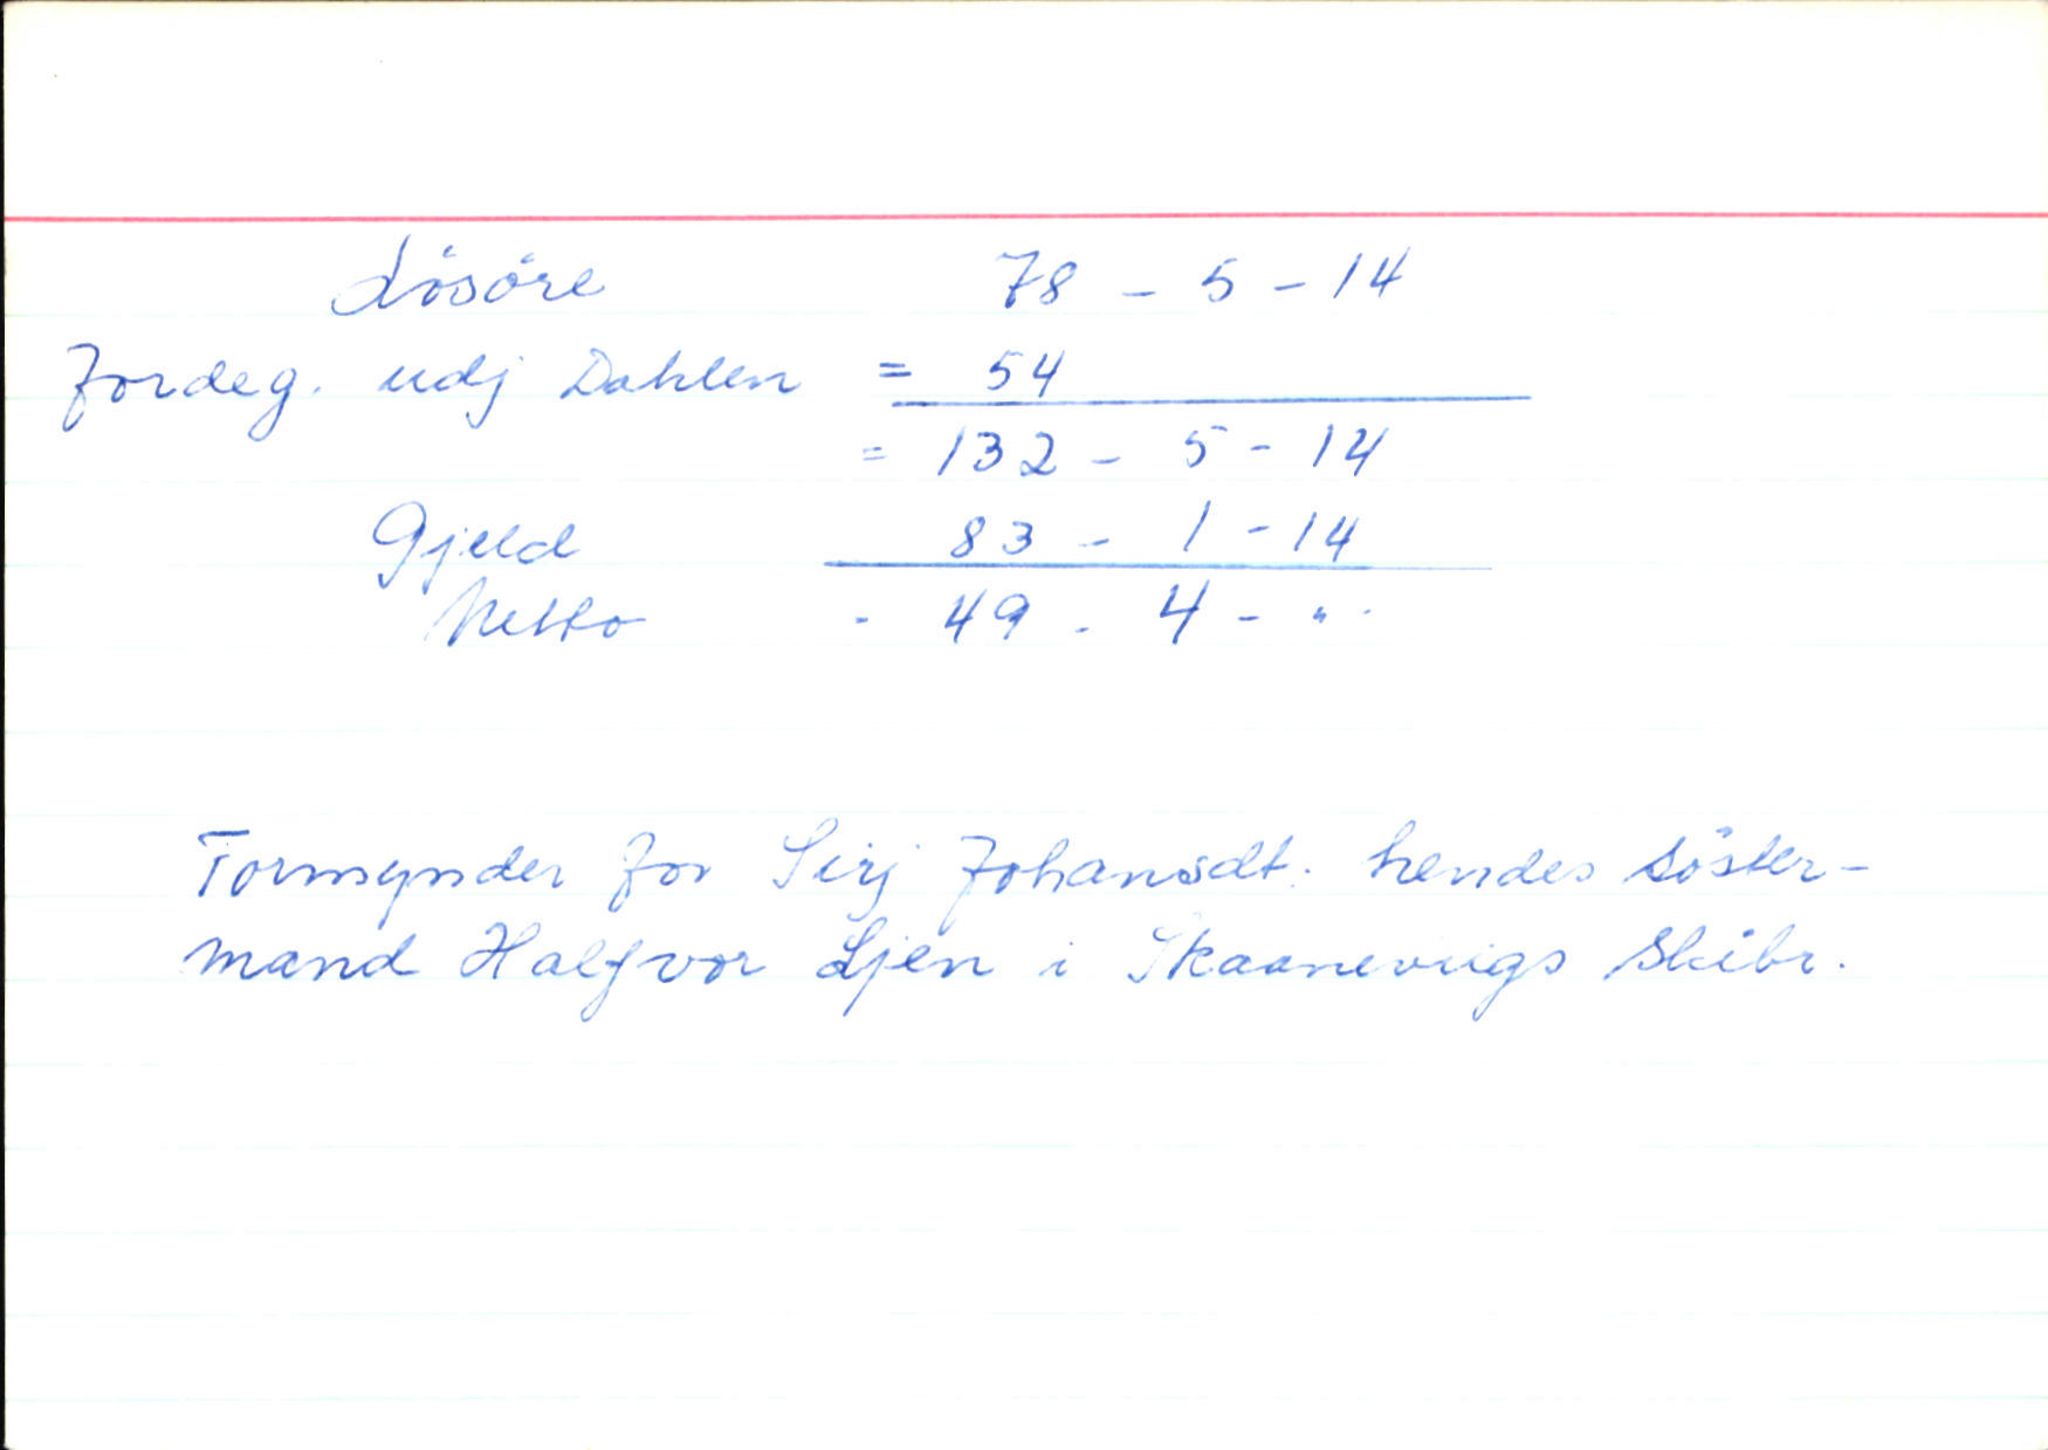 Lösöre 78 - 5 - 14
Jordeg. udj Dahlen = 54
= 132 - 5 - 14
Gjeld 83 - 1 - 14
Netto - 49 - 4 - "
Formynder for Sirj Johansdt. hendes söster-
mand Halfvor Ljen i Skaaneviigs Skibr.